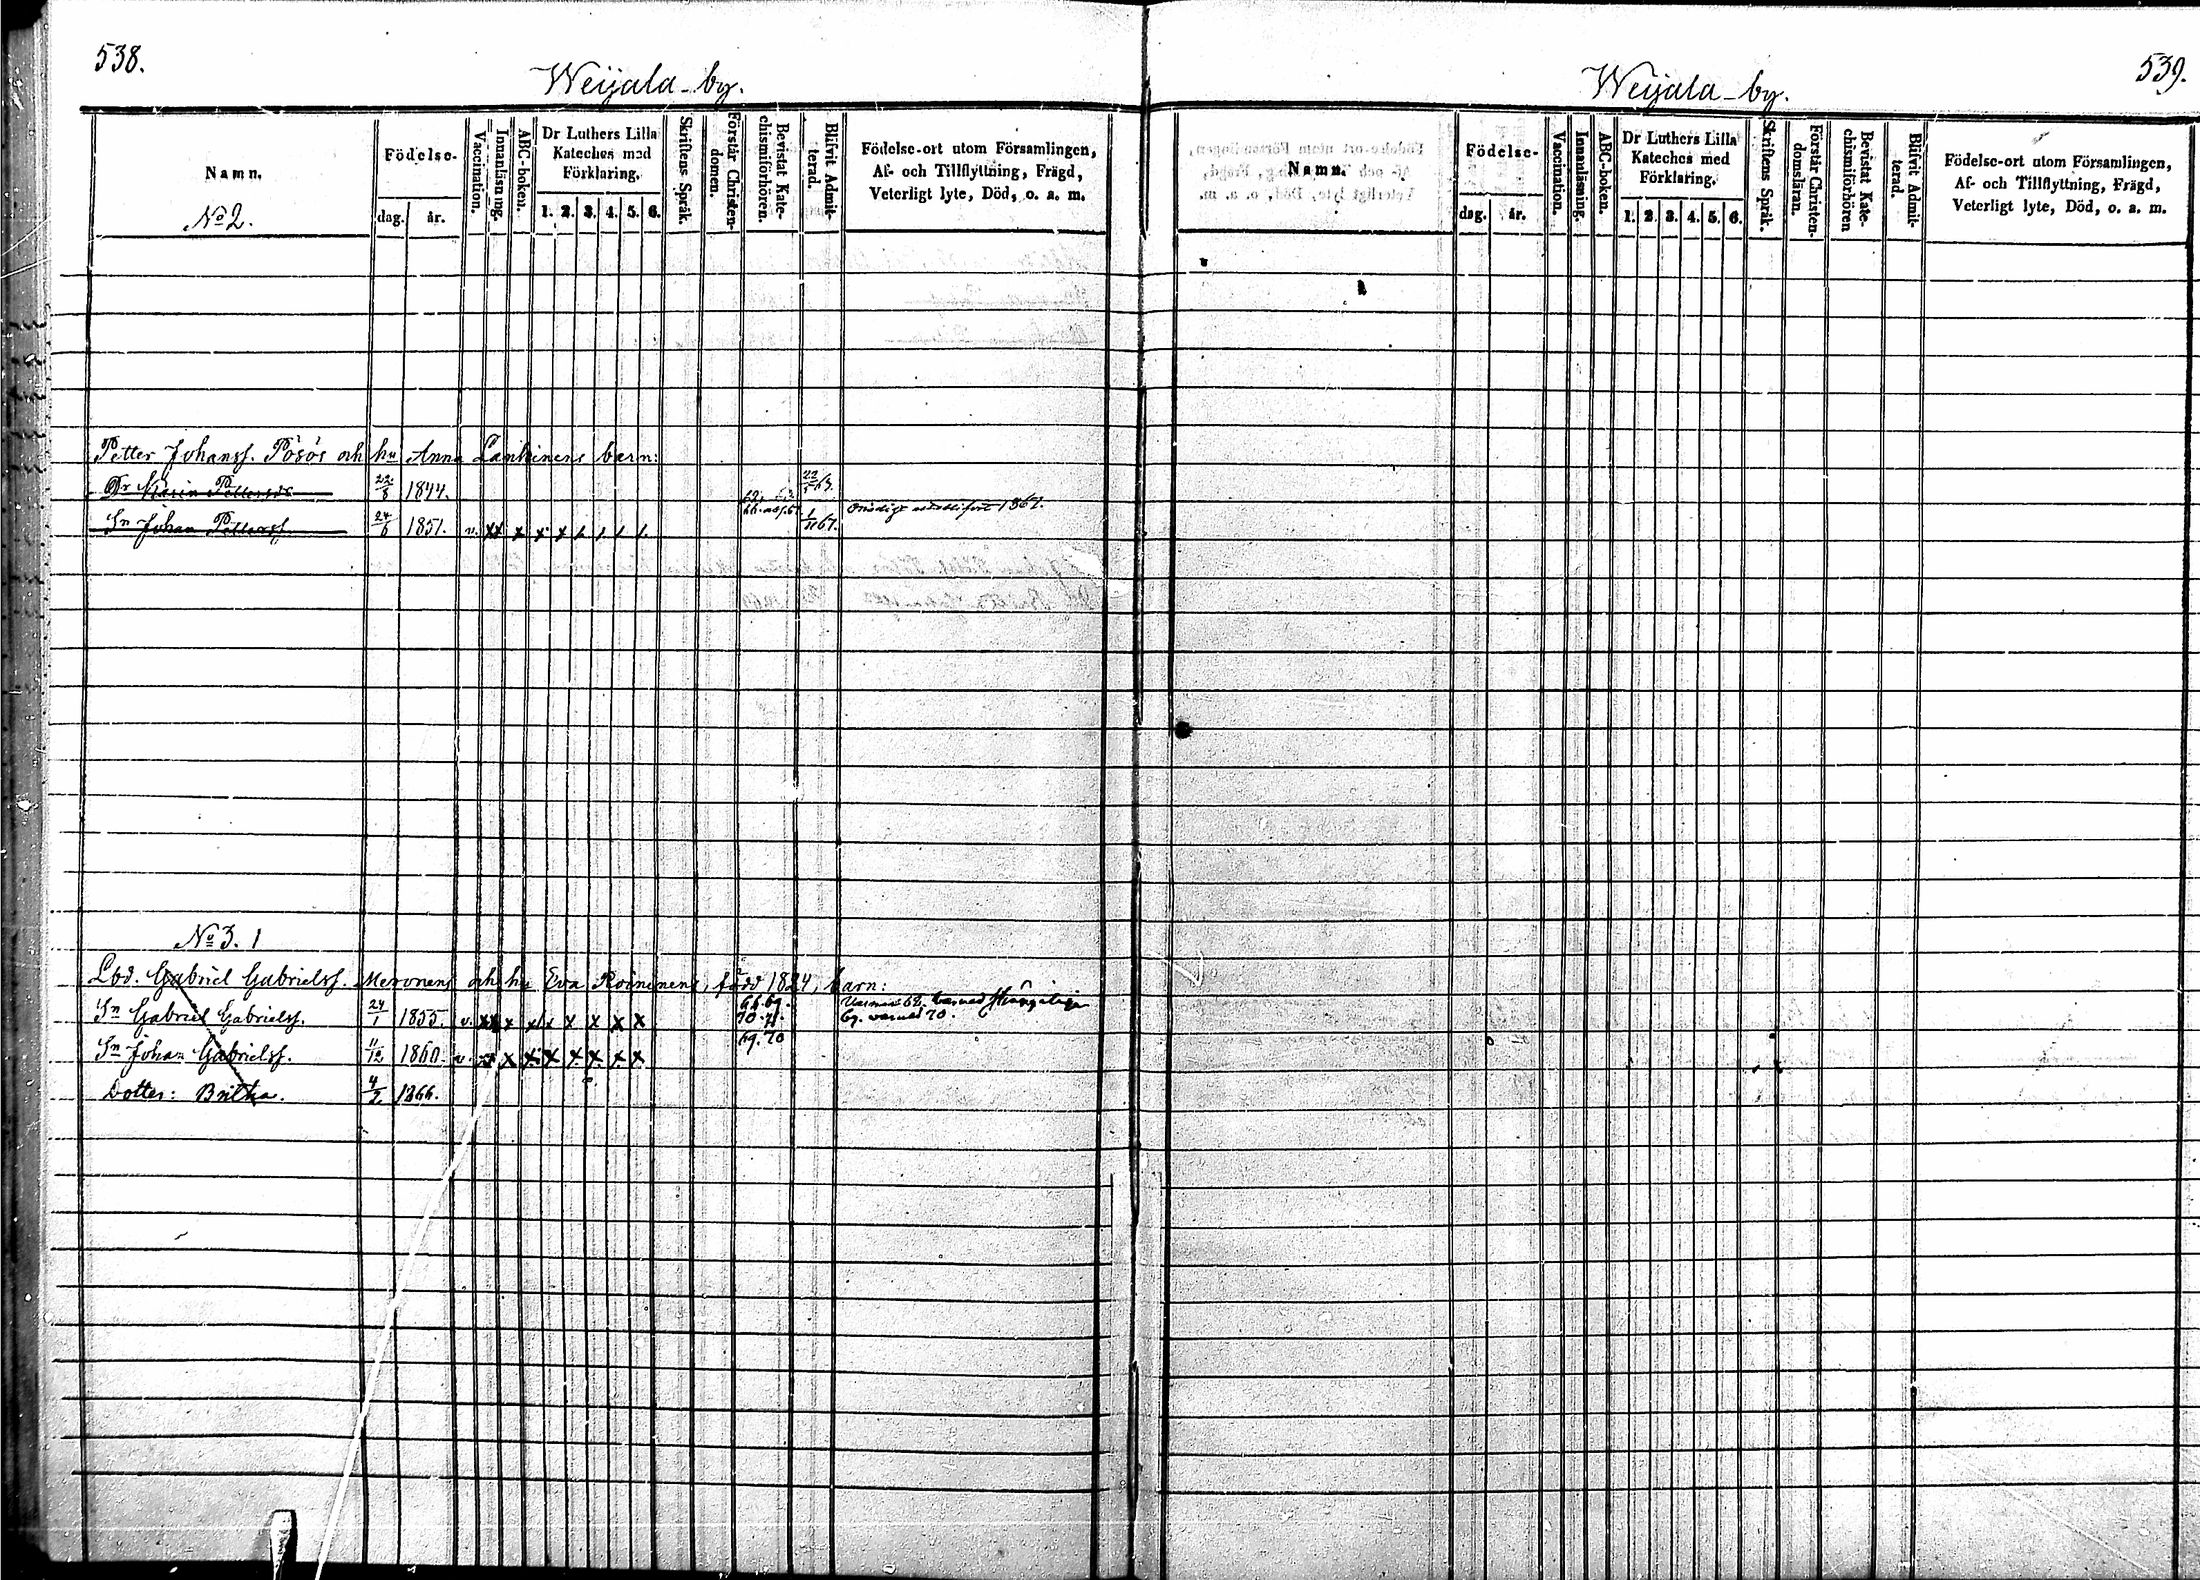 538.
Weijala by.
Namn.
No 2.
Födelse-
dag. år.
Vaccination.
Innanläsning.
ABC-boken.
Dr Luthers Lilla
Kateches med
Förklaring.
1. 2. 3. 4. 5. 6.
Skriftens Språk.
Förstår Christen-
domen.
Bevistat Kate-
chismiförhören.
Blifvit Admit-
terad.
Födelse-ort utom Församlingen,
Af- och Tillflyttning, Frägd,
Veterligt lyte, Död, o. a. m.
Petter Johanss. Pösös och hu Anna Lankinens barn:
Dr Maria Pettersdr 22/8 1844. 22/5 63.
Sn Johan Petterss. 24/6 1851. v. xx x x x 1/11 67. 1867.
No 3. 1
Lbd. Gabriel Gabrielss. Meronens och hu Eva Roininens, född 1824, barn:
Sn Gabriel Gabrielss. 24/1 1855. v. xx x x x x x x x 66. 69. 70. 71.
69. varnad 70.
Sn Johan Gabrielss. 11/12 1860. v. x x x x x x x x 69. 70
Dotter: Britha. 4/2 1866.
539.
Weijala by.
Namn.
Födelse-
dag. år.
Vaccination.
Innanläsning.
ABC-boken.
Dr Luthers Lilla
Kateches med
Förklaring.
1. 2. 3. 4. 5. 6.
Skriftens Språk.
Förstår Christen-
domsläran.
Bevistat Kate-
chismiförhören
Blifvit Admit-
terad.
Födelse-ort utom Församlingen,
Af- och Tillflyttning, Frägd,
Veterligt lyte, Död, o. a. m.